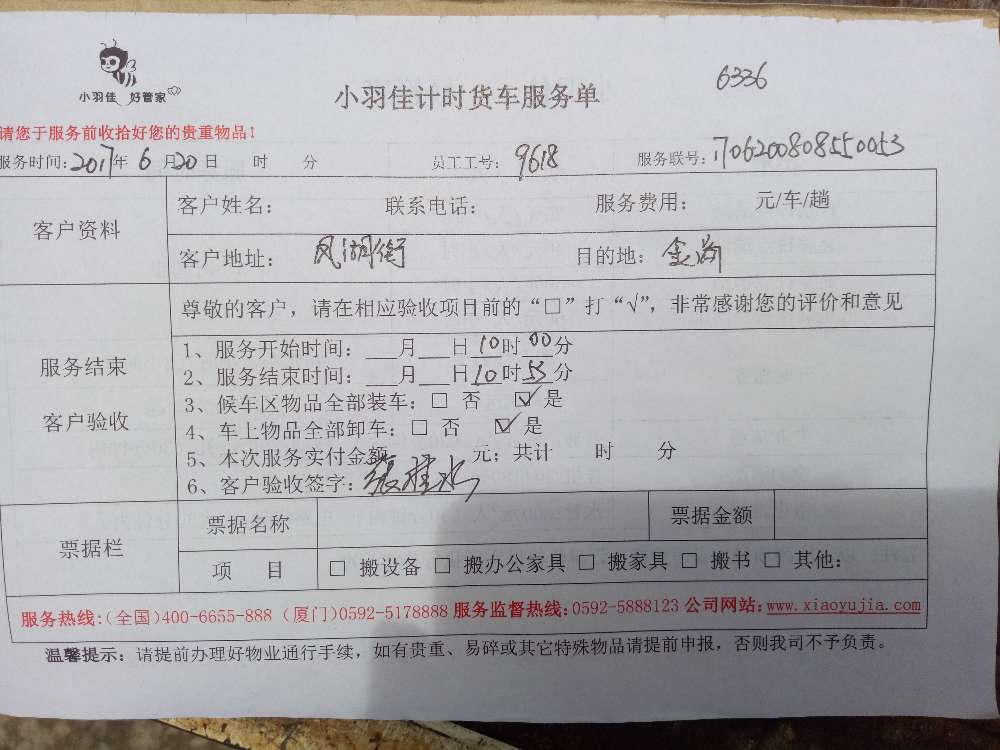 小羽佳 好管家
小羽佳计时货车服务单
6336
请您于服务前收拾好您的贵重物品!
服务时间:2017年 6月20日 时 分 员工工号: 9618 服务联号: 1706200808550053
客户资料
客户姓名: 联系电话: 服务费用: 元/车/趟
客户地址: 凤湖街 目的地: 金尚
服务结束
客户验收
尊敬的客户,请在相应验收项目前的“□”打“√”,非常感谢您的评价和意见
1、服务开始时间:___月___日10时00分
2、服务结束时间:___月___日10时55分
3、候车区物品全部装车:□ 否 ☑是
4、车上物品全部卸车:□ 否 ☑是
5、本次服务实付金额 元;共计 时 分
6、客户验收签字:
票据栏
票据名称 票据金额
项 目 □ 搬设备 □ 搬办公家具 □ 搬家具 □ 搬书 □ 其他:
服务热线:(全国)400-6655-888 (厦门)0592-5178888 服务监督热线:0592-5888123 公司网站:www.xiaoyujia.com
温馨提示:请提前办理好物业通行手续,如有贵重、易碎或其它特殊物品请提前申报,否则我司不予负责。